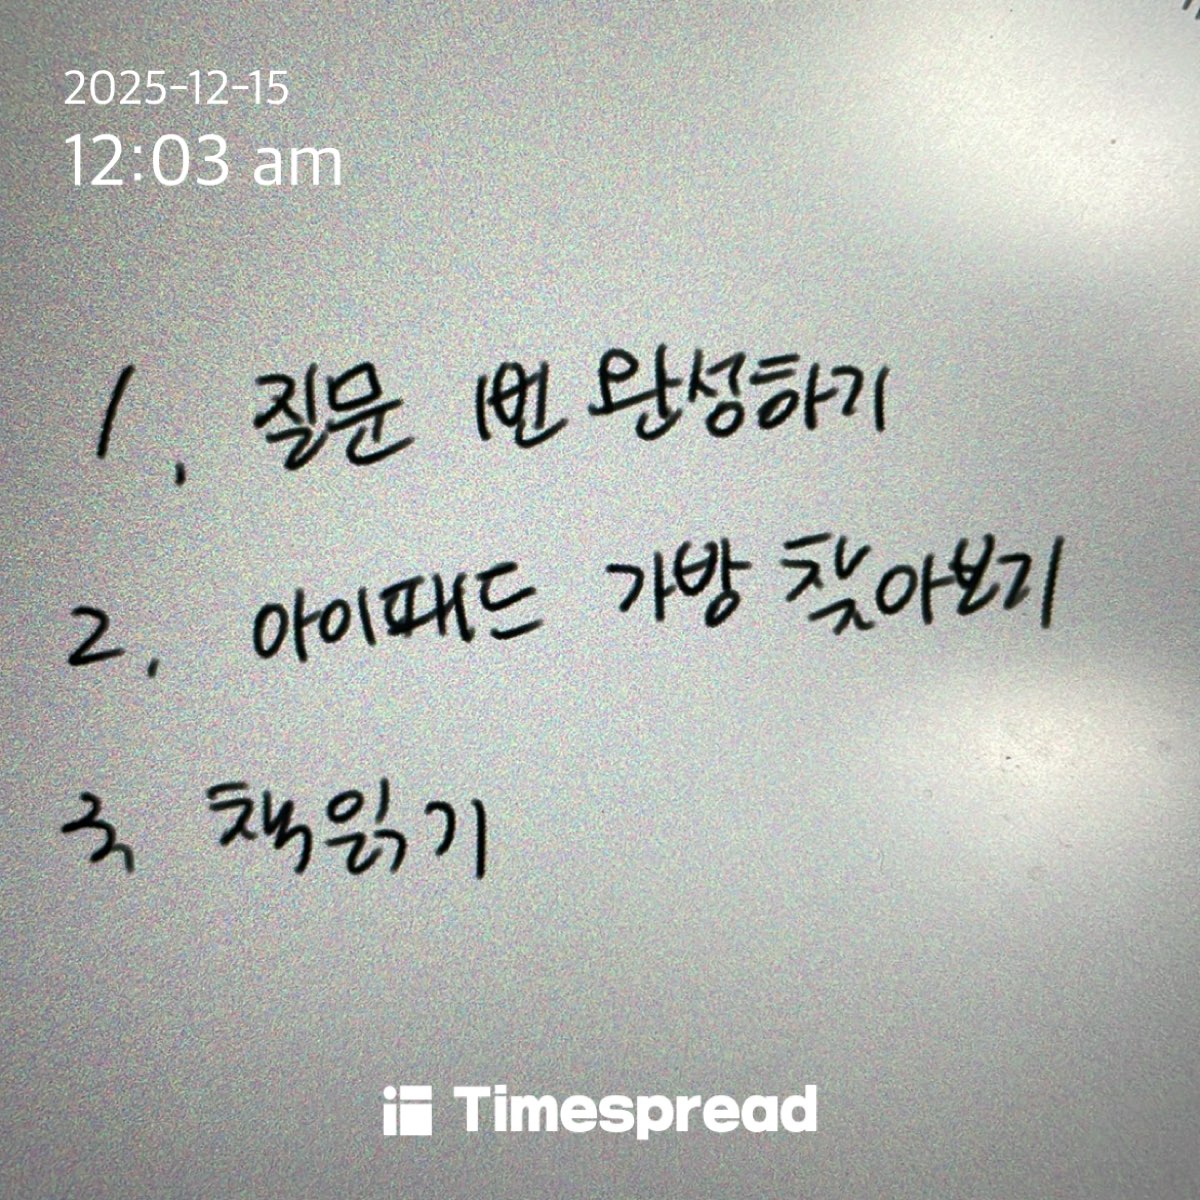 2025-12-15
12:03 am
1. 질문 1번 완성하기
2. 아이패드 가방 찾아보기
3. 책읽기
Timespread